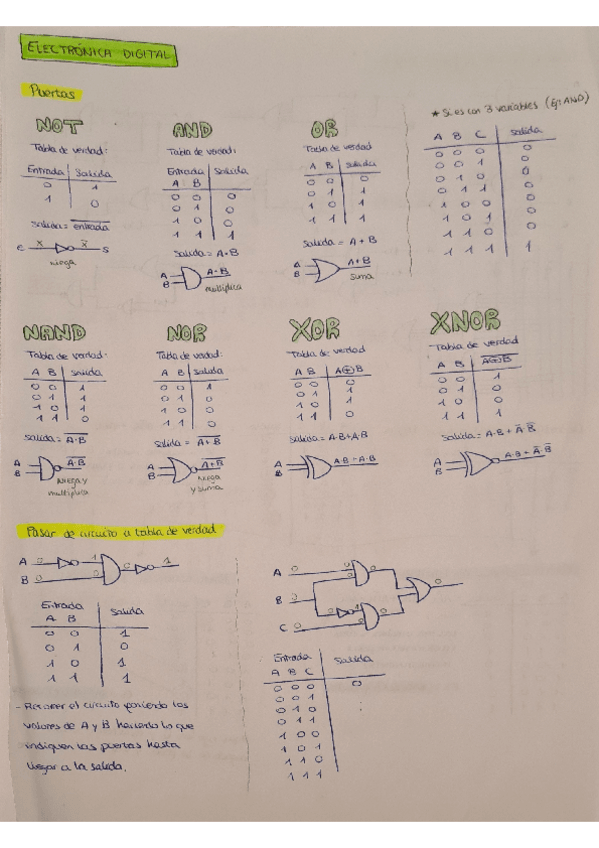 ELECTRÓNICA DIGITAL
Puertas
NOT
Tabla de verdad:
Entrada Salida
0 1
1 0
Salida = entrada
e X X̄ S
niega
AND
Tabla de verdad:
Entrada Salida
A B
0 0 0
0 1 0
1 0 0
1 1 1
Salida = A·B
A B A·B
multiplica
OR
Tabla de verdad
A B Salida
0 0 0
0 1 1
1 0 1
1 1 1
Salida = A + B
A B A+B
suma
* Si es con 3 variables (Ej: AND)
A B C Salida
0 0 0 0
0 0 1 0
0 1 0 0
0 1 1 0
1 0 0 0
1 0 1 0
1 1 0 0
1 1 1 1
NAND
Tabla de verdad:
A B Salida
0 0 1
0 1 1
1 0 1
1 1 0
Salida = A·B
A B A·B
Niega y
multiplica
NOR
Tabla de verdad:
A B Salida
0 0 1
0 1 0
1 0 0
1 1 0
Salida = A+B
A B A+B
Niega
y suma
XOR
Tabla de verdad
A B A⊕B
0 0 0
0 1 1
1 0 1
1 1 0
Salida = A·B+A·B
A B
XNOR
Tabla de verdad
A B A⊕B
0 0 1
0 1 0
1 0 0
1 1 1
Salida = A·B + Ā·B̄
A B A·B + Ā·B̄
Pasar de circuito a tabla de verdad
A 0 1 0 1
B 0
Entrada Salida
A B
0 0 1
0 1 0
1 0 1
1 1 1
- Recorrer el circuito poniendo los
valores de A y B haciendo lo que
indiquen las puertas hasta
llegar a la salida.
A 0
B 0
C 0
Entrada Salida
A B C
0 0 0 0
0 0 1
0 1 0
0 1 1
1 0 0
1 0 1
1 1 0
1 1 1